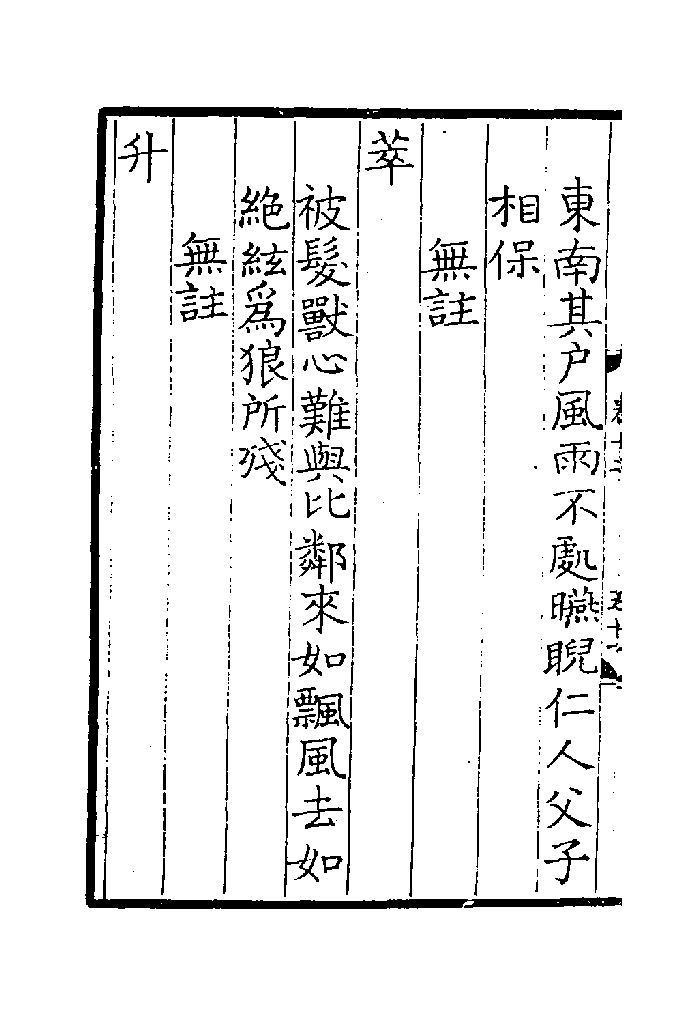 東南其户風雨不處曣睨仁人父子
相保
無註
萃
被髮獸心難與比鄰來如飄風去如
絶絃爲狼所殘
無註
升